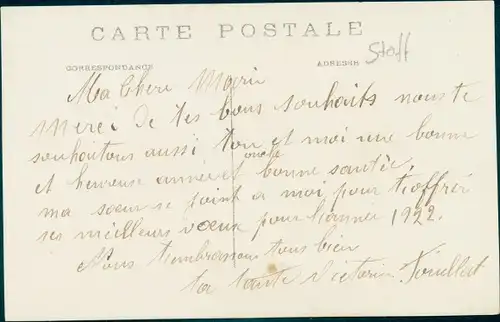 CARTE POSTALE
CORRESPONDANCE
ADRESSE
Staff
Ma Chere Marie
Merci de tes bons souhaits nous te
souhaitons aussi ton oncle et moi une bonne
et heureuse année et bonne santée,
ma soeur se joint a moi pour t'offrir
ses meilleurs voeux pour l'année 1922.
Nous t'embrassons tous bien
ta tante Victorine